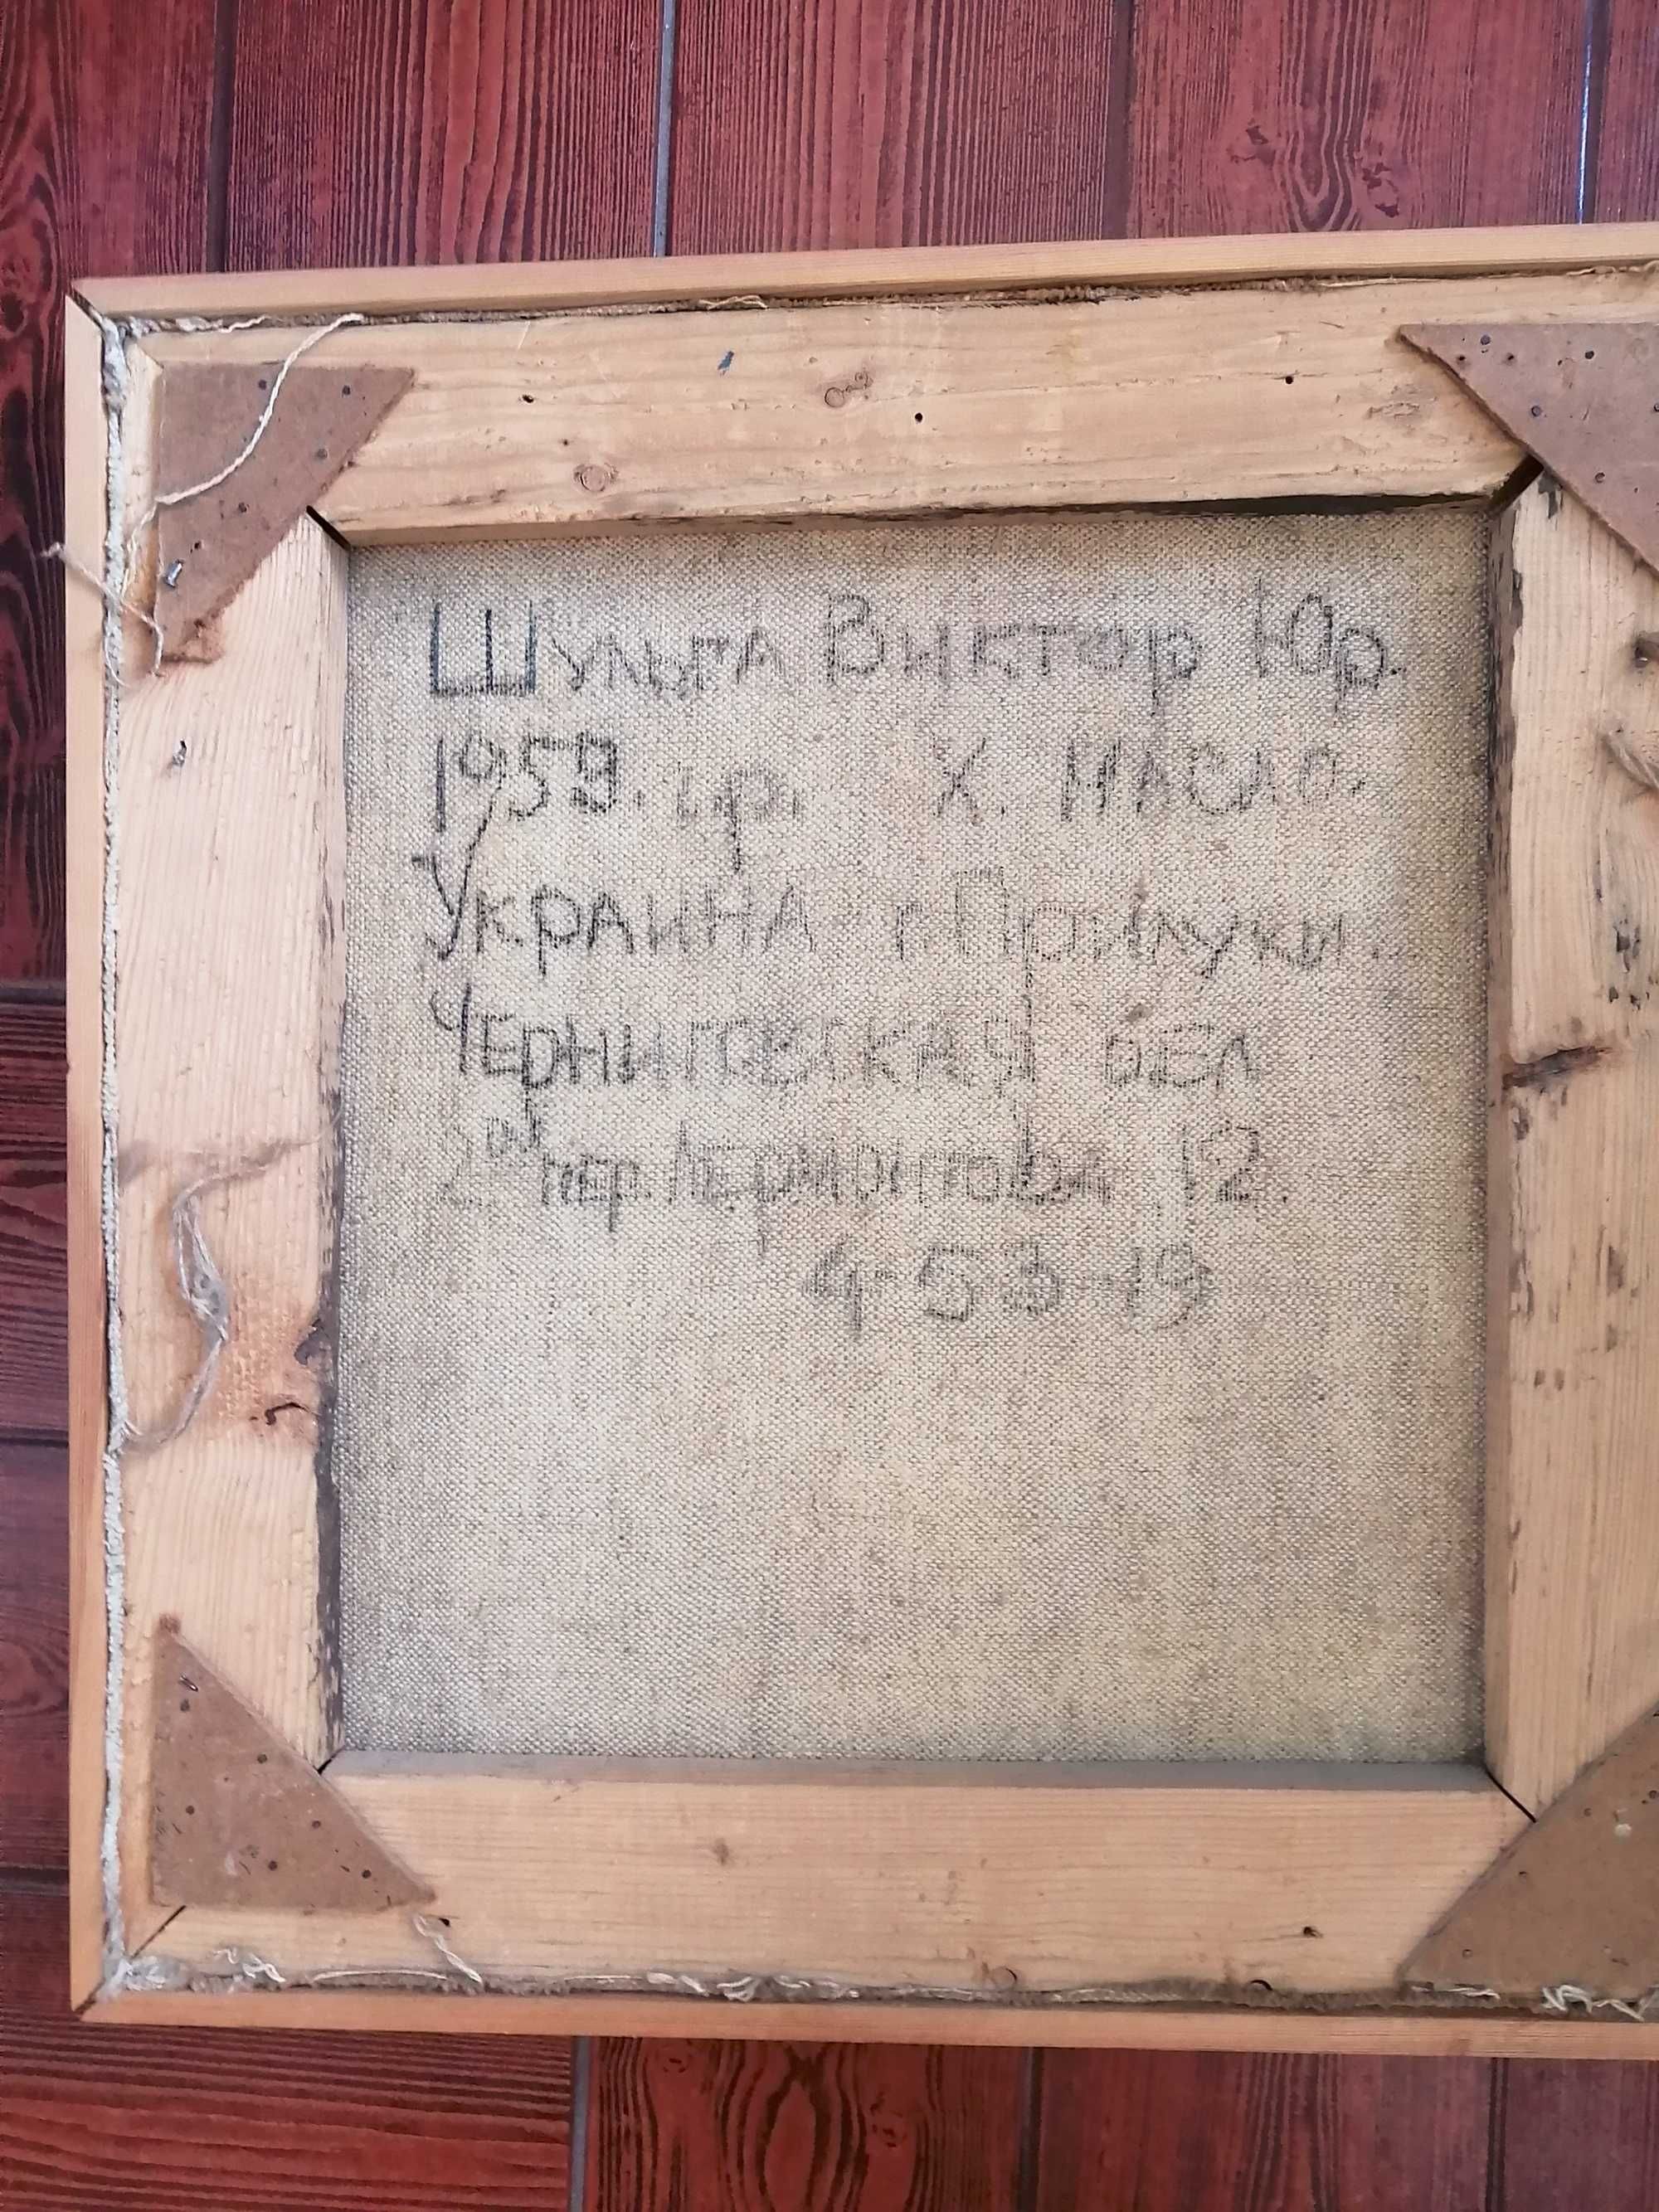 Шульга Виктор Юр.
1959. г.р. Х. Масло.
Украина г. Прилуки.
Черниговская обл
2ой пер. Лермонтова 12.
4-53-19